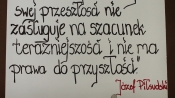 swej przeszłości nie
zasługuje na szacunek
teraźniejszości i nie ma
prawa do przyszłości"
Józef Piłsudski